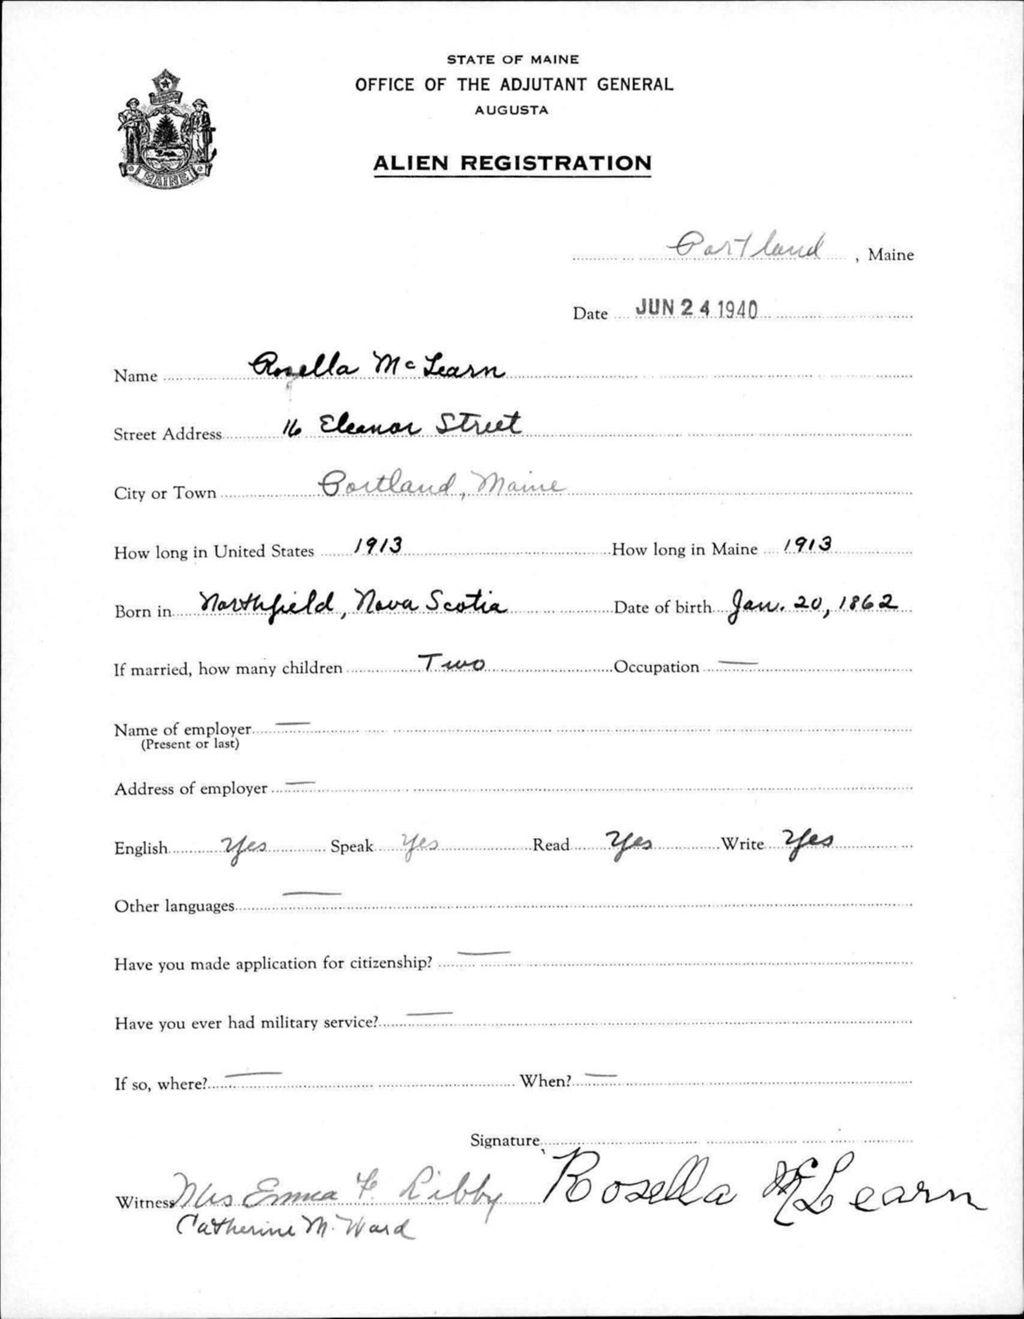 STATE OF MAINE
OFFICE OF THE ADJUTANT GENERAL
AUGUSTA
ALIEN REGISTRATION
MAINE
Portland, Maine
Date JUN 24 1940
Name Rosella McLearn
Street Address 16 Eleanor Street
City or Town Portland, Maine
How long in United States 1913 How long in Maine 1913
Born in Northfield, Nova Scotia Date of birth Jan. 20, 1862
If married, how many children Two Occupation —
Name of employer —
(Present or last)
Address of employer —
English Yes Speak Yes Read Yes Write Yes
Other languages —
Have you made application for citizenship? —
Have you ever had military service? —
If so, where? — When? —
Signature
Witness Mrs Emma F. Libby Rosella McLearn
Catherine M. Ward